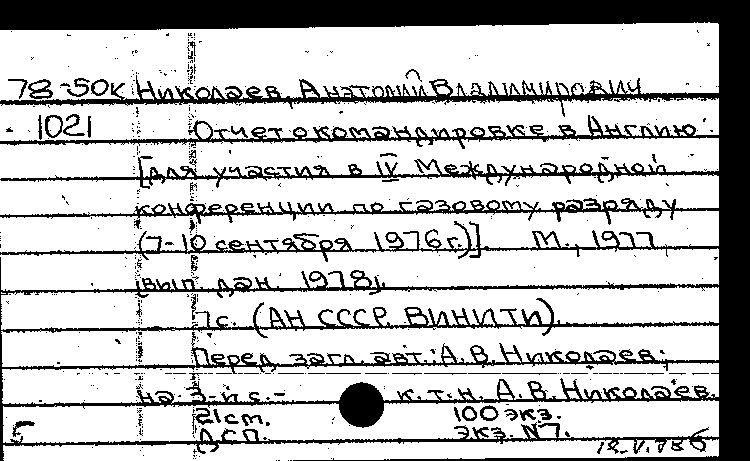 78-50к Николаев, Анатолий Владимирович
1021 Отчет о командировке в Англию
[для участия в IV Международной
конференции по газовому разряду
(7-10 сентября 1976 г.)]. М., 1977
[вып. дан. 1978].
7 с. (АН СССР. ВИНИТИ).
Перед загл. авт.: А.В. Николаев;
на 3-й с.- к.т.н. А.В. Николаев.
21 см. 100 экз.
5 ДСП. экз. N7.